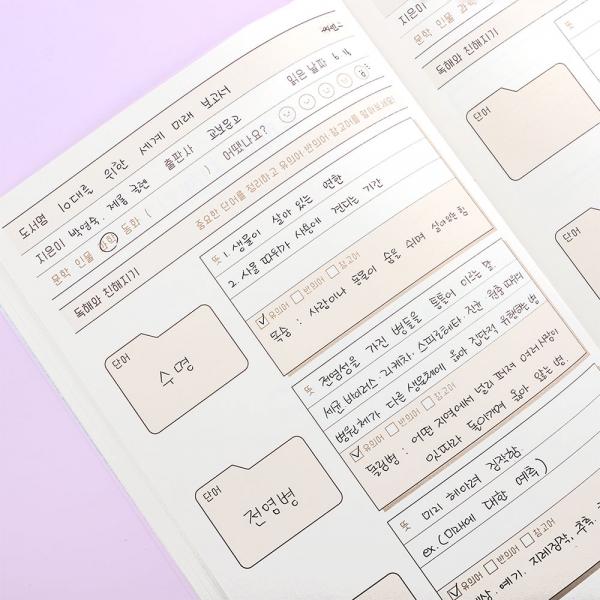 도서명 10대를 위한 세계 미래 보고서
지은이 박영숙. 제롬 글렌 출판사 교보문고 읽은 날짜 6. 4
문학 인물 과학 동화 ( ) 어땠나요?
독해와 친해지기 중요한 단어를 정리하고 유의어 반의어 참고어를 알아보세요!
단어
수명
뜻 1. 생물이 살아 있는 연한
2. 사물 따위가 사용에 견디는 기간
유의어 반의어 참고어
목숨 : 사람이나 동물이 숨을 쉬며 살아있는 힘
단어
전염병
뜻 전염성을 가진 병들을 통틀어 이르는 말.
세균. 바이러스. 리케차. 스피로헤타. 진균. 원충 따위의
병원체가 다른 생물체에 옮아 집단적 유행하는 병
유의어 반의어 참고어
돌림병 : 어떤 지역에서 널리 퍼져 여러 사람이
잇따라 돌아가며 옮아 앓는 병.
뜻 미리 헤아려 짐작함
ex. (미래에 대한 예측)
유의어 반의어 참고어
예상. 예기. 지레짐작, 추측.
지은이
문학 인물 과학
독해와 친해지기
단어
뜻
단어